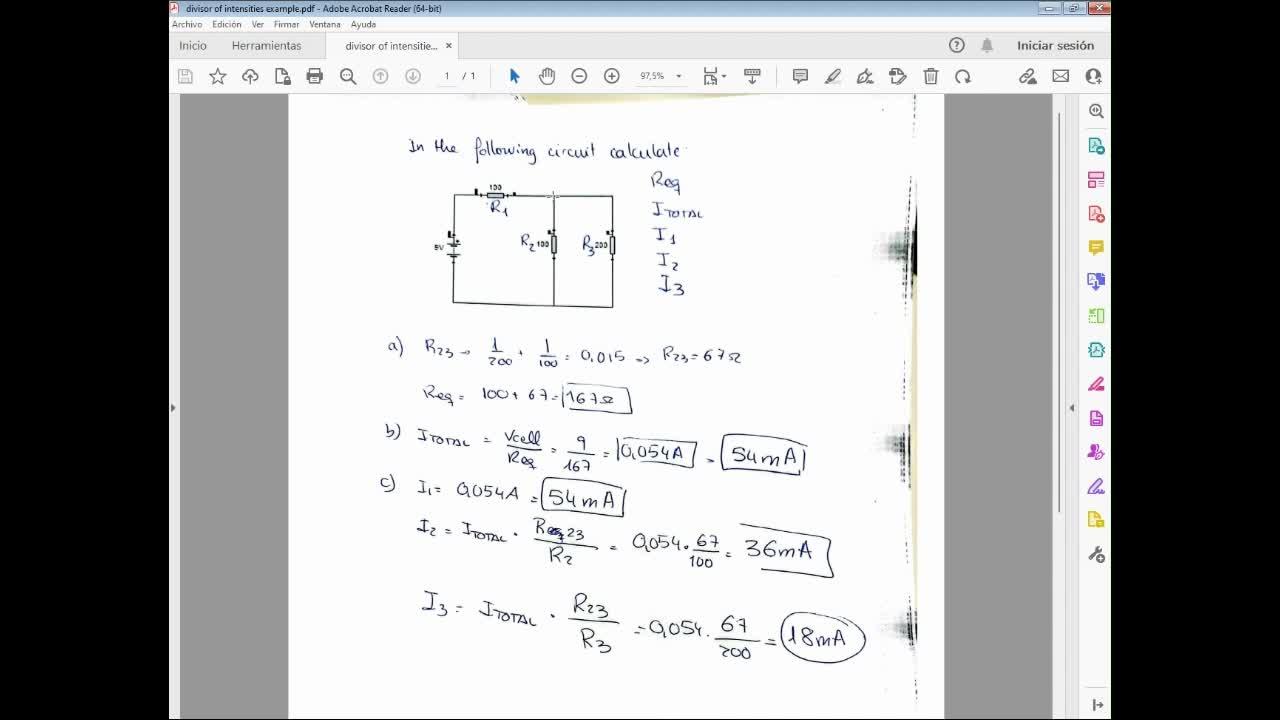 divisor of intensities example.pdf - Adobe Acrobat Reader (64-bit)
Archivo Edición Ver Firmar Ventana Ayuda
Inicio Herramientas divisor of intensitie... × Iniciar sesión
1 / 1 97,5%
In the following circuit calculate
Req
ITOTAL
I1
I2
I3
100
R1
9V
R2 100
R3 200
a) R23 → 1/200 + 1/100 = 0,015 => R23 = 67Ω
Req = 100 + 67 = 167Ω
b) ITOTAL = Vcell/Req = 9/167 = 0,054A = 54mA
c) I1 = 0,054A = 54mA
I2 = ITOTAL · R23/R2 = 0,054 · 67/100 = 36mA
I3 = ITOTAL · R23/R3 = 0,054 · 67/200 = 18mA